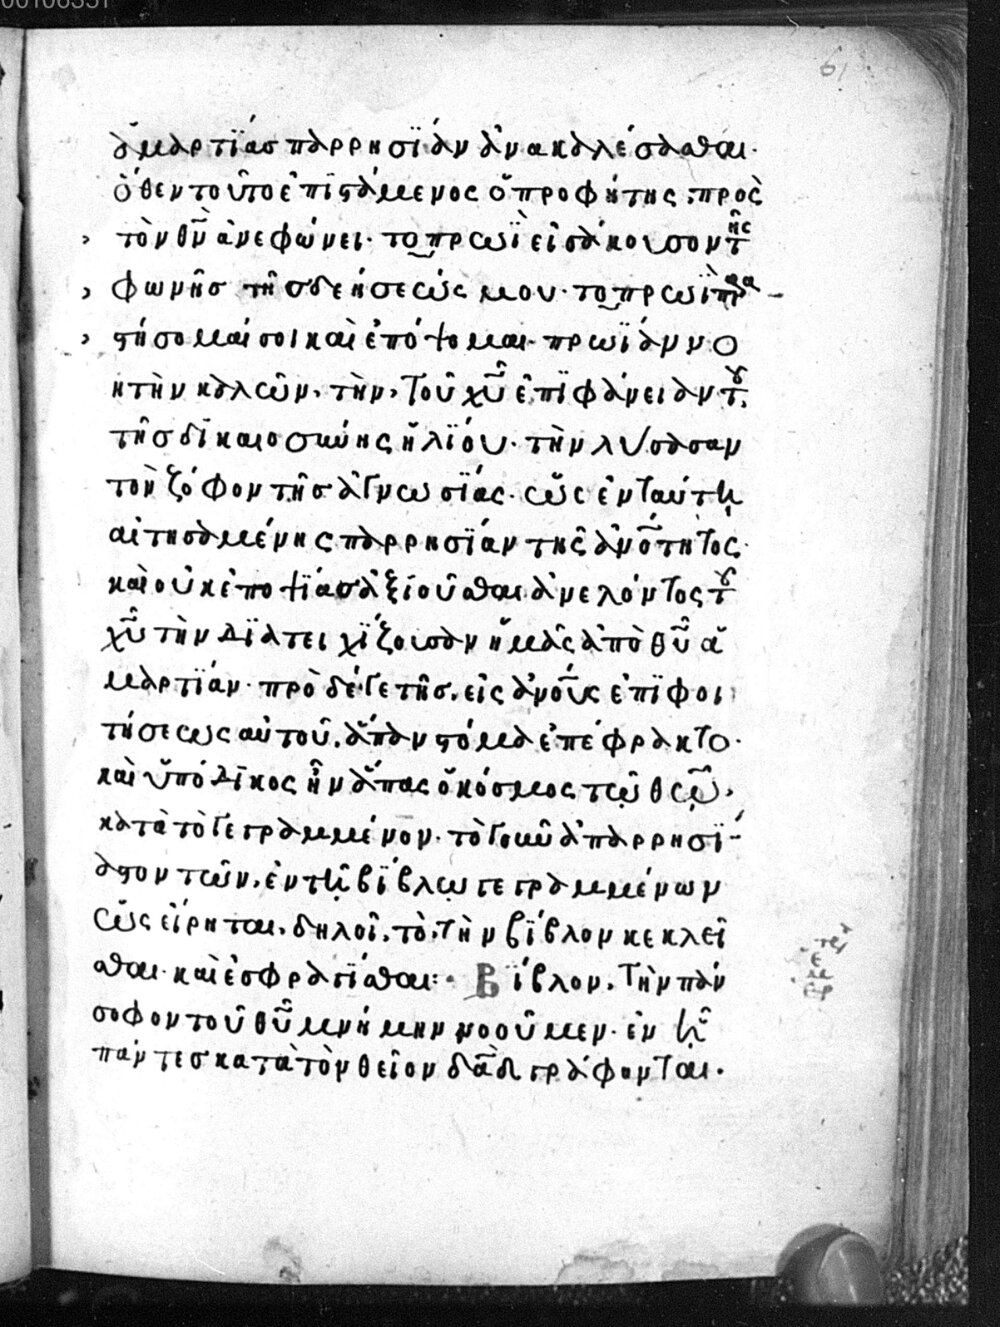 61
ἁμαρτίας παρρησίαν ἀνακαλέσασθαι·
ὅθεν τοῦτο ἐπιστάμενος ὁ προφήτης, πρὸς
τὸν θν̅ ἀνεφώνει· τοπρωῒ εἰσάκουσον τῆς
φωνῆς τῆς δεήσεώς μου· τοπρωῒ παρα
στήσομαί σοι καὶ ἐπόψομαι· πρωΐαν νο
ητὴν καλῶν, τὴν, τοῦ χυ̅ ἐπιφάνειαν τοῦ
τῆς δικαιοσύνης ἡλίου· τὴν λύσασαν
τὸν ζόφον τῆς ἀγνωσίας· ὡς ἐν ταύτη
αἰτησαμένης παρρησίαν τῆς ἀνο̅τητος·
καὶ οὐκ ἐποψίας ἀξιοῦσθαι ἀνελόντος τοῦ
χυ̅ τὴν διατειχίζουσαν ἡμᾶς ἀπὸ θυ̅ ἁ
μαρτίαν· πρὸ δέ γε τῆς, εἰς ἀνο̅υς ἐπιφοι
τήσεως αὐτοῦ, ἅπαν στόμα ἐπέφρακτο·
καὶ ὑπόδικος ἦν ἅπας ὁ κόσμος τῷ θω̅,
κατὰ τὸ γεγραμμένον· τὸ γοῦν ἀπαρρησί
αστον τῶν, ἐν τῇ βίβλω γεγραμμένων
ὡς εἴρηται, δηλοῖ, τὸ, τὴν βίβλον κεκλεῖ
σθαι· καὶ ἐσφραγίσθαι: · Βίβλον, τὴν πάν
σοφον τοῦ θυ̅ μνήμην νοοῦμεν· ἐν ᾗ
πάντες κατὰ τὸν θεῖον δαδ̅ γράφονται·